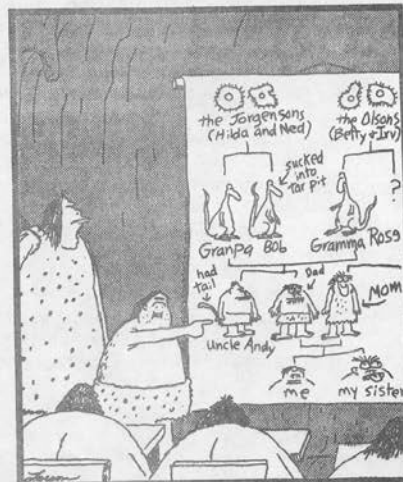 the Jorgensons
(Hilda and Ned)
the Olsons
(Betty + Irv)
sucked
into
tar pit
?
Granpa Bob
Gramma Rose
had
tail
Dad
MOM
Uncle Andy
me
my sister
Larson